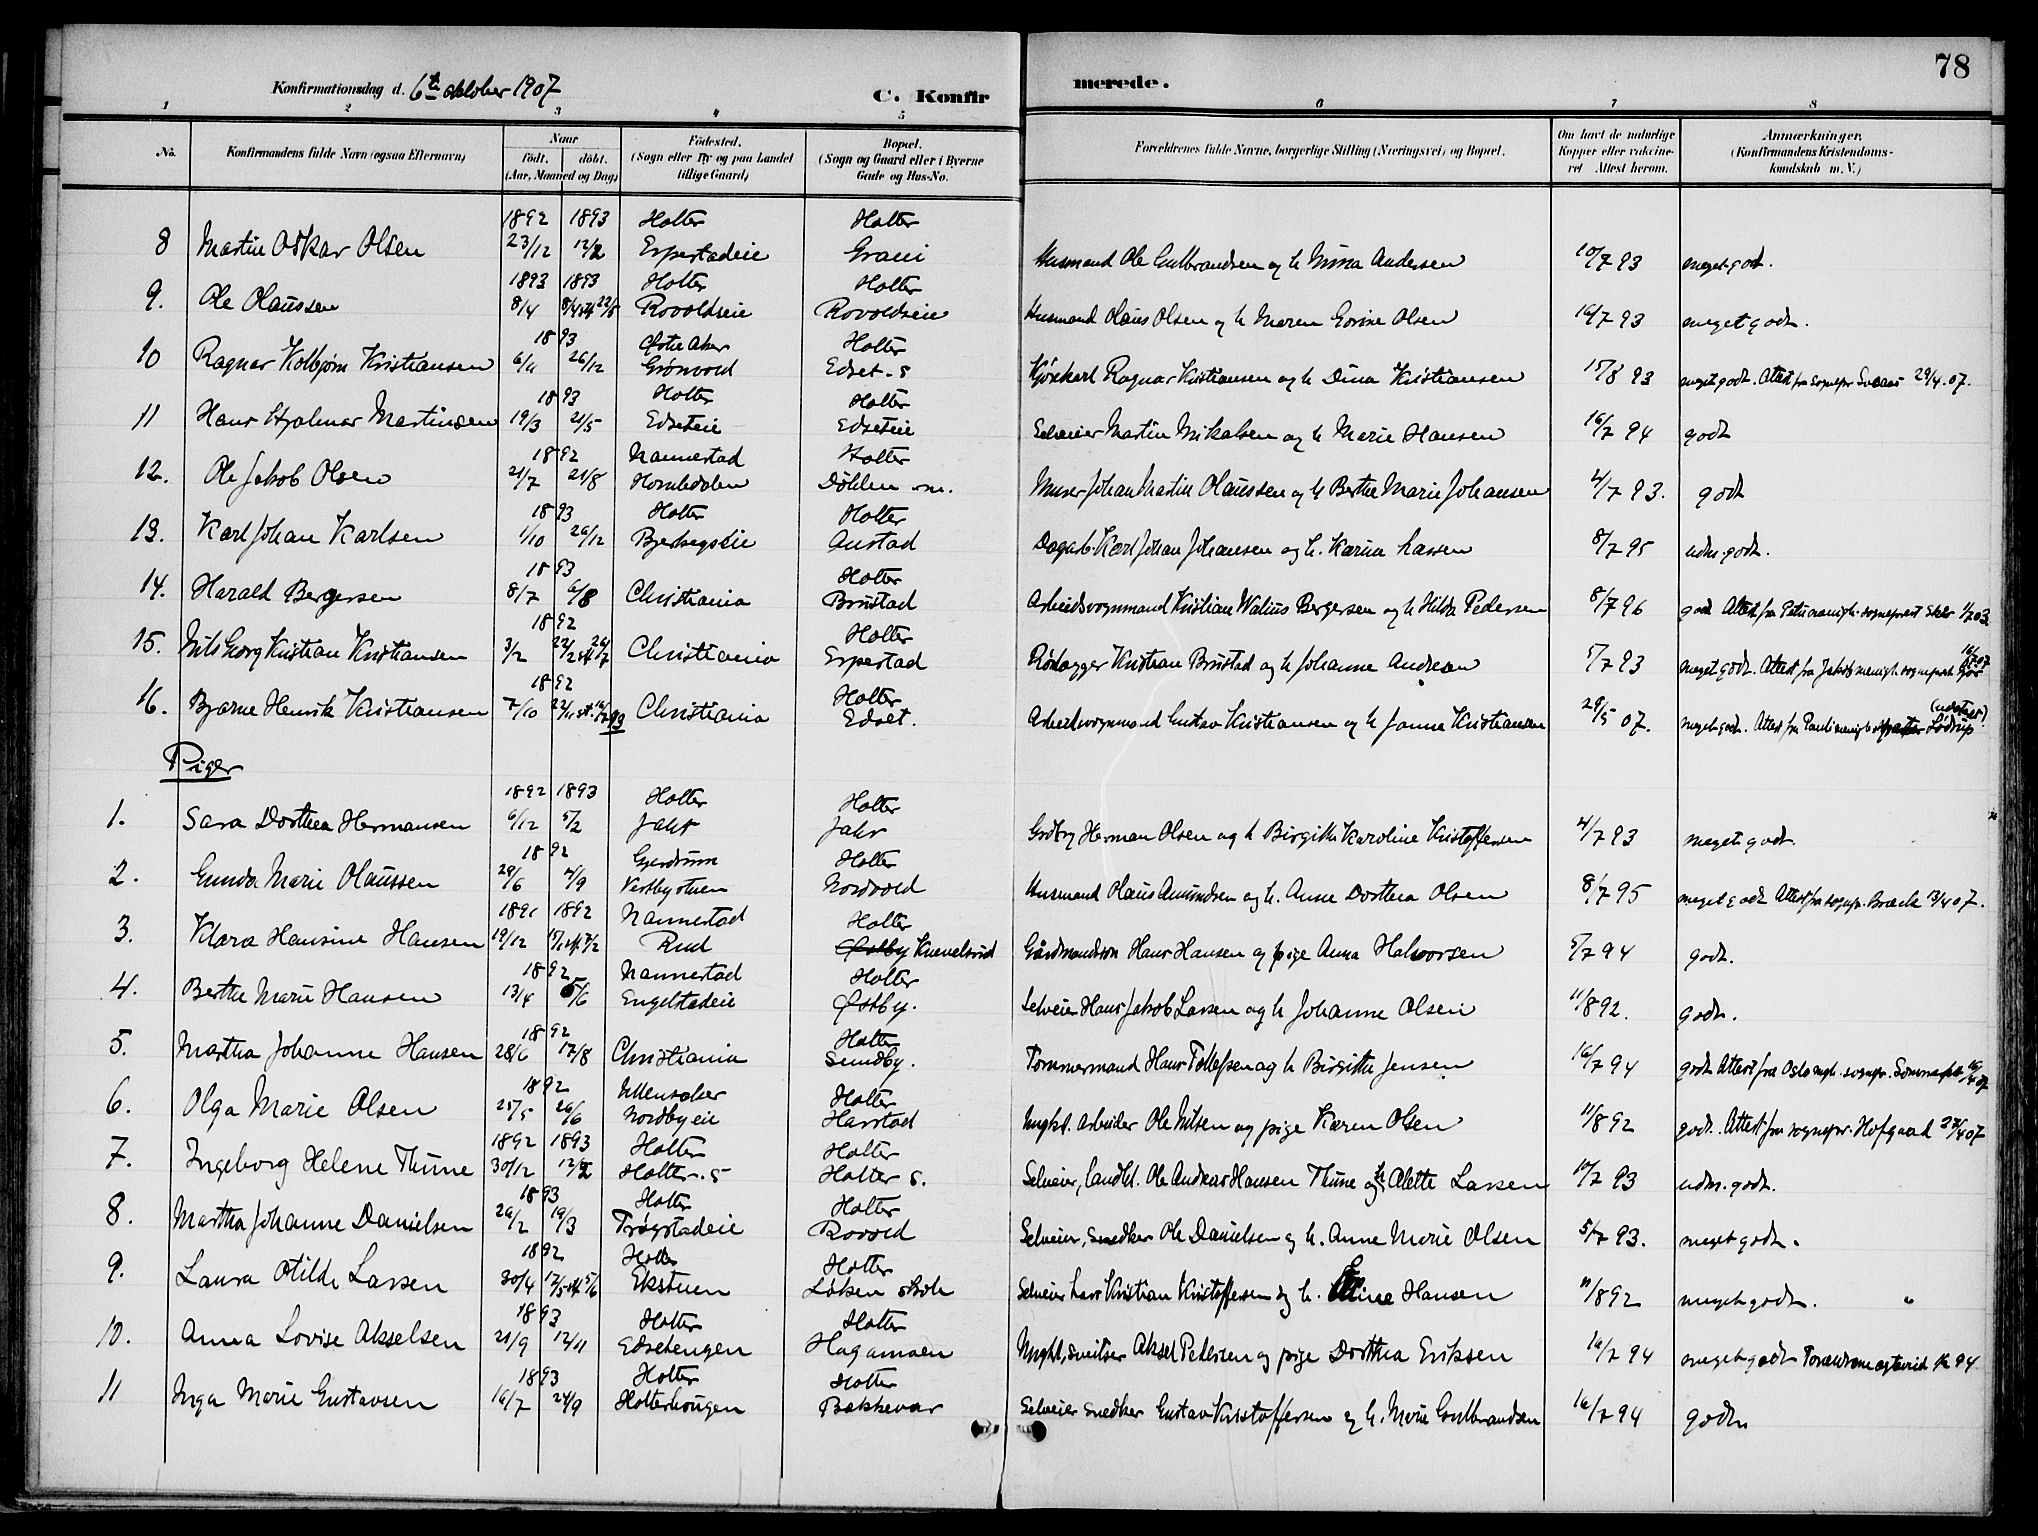 78
Konfirmationsdag d. 6te oktober 1907
C. Konfirmerede.
1 2 3 4 5 6 7 8
No.
Konfirmandens fulde Navn (ogsaa Efternavn)
Naar
født. døbt.
(Aar, Maaned og Dag)
Fødested.
(Sogn eller By og paa Landet
tillige Gaard)
Bopæl.
(Sogn og Gaard eller i Byerne
Gade og Hus-No.
Forældrenes fulde Navne, borgerlige Stilling (Næringsvei) og Bopæl.
Om havt de naturlige
Kopper eller vakcine-
ret Attest herom.
Anmærkninger.
(Konfirmandens Kristendoms-
kundskab m. V.)
1892 1893 Holter Holter
8 Martin Oskar Olsen 23/12 12/2 Erpestadeie Grani Husmand Ole Gulbrandsen og h Mina Andersen 10/7 93 meget godt.
1893 1893 Holter Holter
9. Ole Olaussen 8/4 22/5 Rovoldseie Rovoldseie Husmand Olaus Olsen og h Maren Lovise Olsen 16/7 93 meget godt.
1893 Østre Aker Holter
10 Ragnar Kolbjørn Kristiansen 6/11 26/12 Grønvold Edset. s Kjørekarl Ragnar Kristiansen og h Dina Kristiansen 15/8 93 meget godt. Attest fra sognepr Svaar 29/4.07.
1893 Holter Holter
11 Hans Hjalmar Martinsen 19/3 21/5 Edseteie Edseteie Selveier Martin Mikalsen og h Marie Hansen 16/7 94 godt
1892 Nannestad Holter
12. Ole Jakob Olsen 21/7 21/8 Hombdalen Døhlen Murer Johan Martin Olaussen og h Berthe Marie Johansen 4/7 93. godt
1893 Holter Holter
13. Karl Johan Karlsen 1/10 26/12 Bjerkegseie Austad Dagarb. Karl Johan Johansen og h. Karina Larsen 8/7 95 udm. godt.
1893 Holter
14. Harald Bergersen 8/7 6/8 Christiania Brustad Arbeidsvognmand Kristian Walius Bergersen og h Hilda Pedersen 8/7 96 godt Attest fra sogneprest
1892 Holter
15. Nils Georg Kristian Kristiansen 3/2 Christiania Erpestad Rørlægger Kristian Brustad og h Johanne Andrean 5/7 93 meget godt. Attest fra Jakobs menigh. sogneprest
1892 Holter
16. Bjarne Henrik Kristiansen 7/10 Christiania Edset. Arbeidsvognmand Gustav Kristiansen og h Janna Kristiansen 29/5 07. meget godt. Attest fra Pauli menigh. Lødrup
Piger
1892 1893 Holter Holter
1. Sara Dorthea Hermansen 6/12 5/2 Jahr Jahr Grdbr Herman Olsen og h Birgitte Karoline Kristoffersen 4/7 93 meget godt.
1892 Gjerdrum Holter
2. Gunda Marie Olaussen 29/6 4/9 Vestbystuen Nordvold Husmand Olaus Amundsen og h. Anne Dorthea Olsen 8/7 95 meget godt Attest fra sognepr. Bræck 13/4 07.
1891 1892 Nannestad Holter
3. Klara Hansine Hansen 19/12 Rud Østby Knevelsrud Gårdmandssøn Hans Hansen og pige Anna Halvorsen 5/7 94 godt.
1892 Nannestad Holter
4. Berthe Marie Hansen 13/4 5/6 Engelstadeie Østby. Selveier Hans Jakob Larsen og h Johanne Olsen 11/8 92. godt.
1892 Holter
5. Martha Johanne Hansen 28/6 17/8 Christiania Sundby. Tømmermand Hans Tollefsen og h Birgitte Jensen 16/7 94 godt Attest fra Oslo mgh. sognepr.
1892 Ullensaker Holter
6. Olga Marie Olsen 25/5 26/6 Nordbyeie Harstad Ungkl. arbeider Ole Nilsen og pige Karen Olsen 11/8 92 godt. Attest fra sognepr. Hofgaard 27/4 07
1892 1893 Holter Holter
7. Ingeborg Helene Thune 30/12 12/2 Holter. s Holter s. Selveier, landh. Ole Andreas Hansen Thune og h Alette Larsen 10/7 93 udm. godt.
1893 Holter Holter
8. Martha Johanne Danielsen 26/2 19/3 Trøgstadeie Rovold Selveier, snedker Ole Danielsen og h. Anne Marie Olsen 5/7 93. meget godt.
1892 Holter Holter
9. Laura Otilde Larsen 30/4 Ekstuen Løken skole Selveier Lars Kristian Kristoffersen og h. Hansen 11/8 92 meget godt.
1893 Holter Holter
10. Anna Lovise Akselsen 21/9 12/11 Edsetengen Hagamoen Ungkl, sveitser Aksel Pedersen og pige Dorthea Eriksen 16/7 94 meget godt
1893 Holter Holter
11 Inga Marie Gustavsen 16/7 24/9 Holterhougen Bakkevar Selveier snedker Gustav Kristoffersen og h. Marie Gulbrandsen 16/7 94 godt.